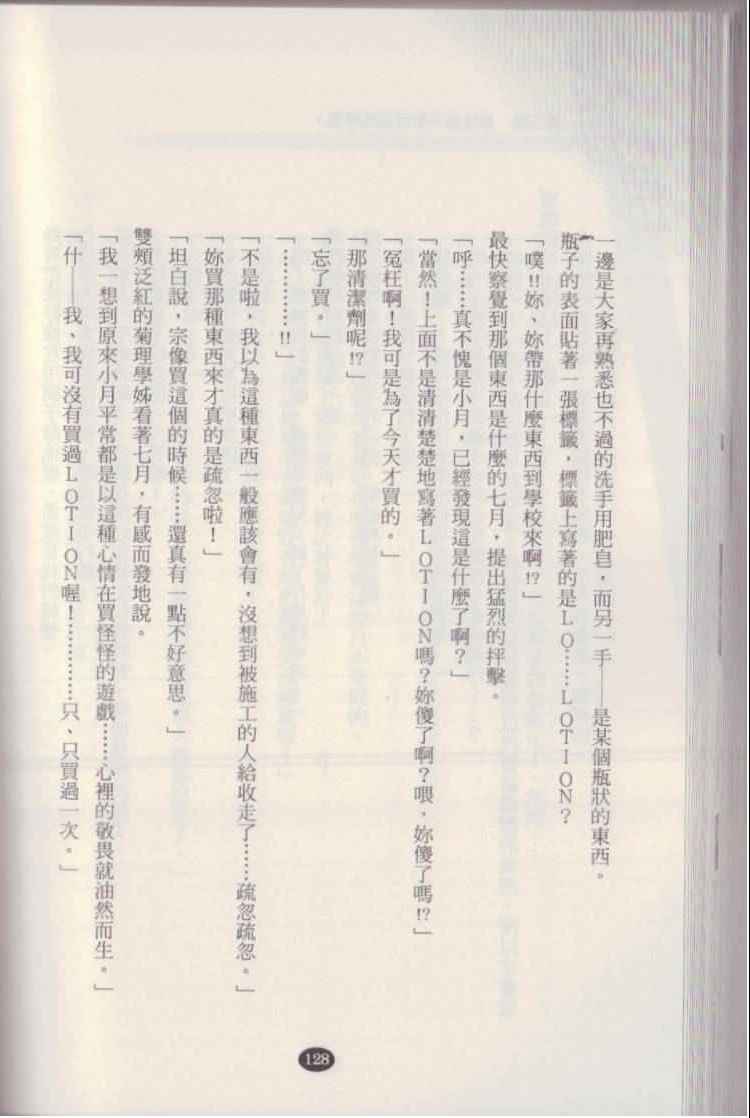 一邊是大家再熟悉也不過的洗手用肥皂，而另一手——是某個瓶狀的東西。
瓶子的表面貼著一張標籤，標籤上寫著的是ＬＯ……ＬＯＴＩＯＮ？
「噗!!妳、妳帶那什麼東西到學校來啊!?」
最快察覺到那個東西是什麼的七月，提出猛烈的抨擊。
「呼……真不愧是小月，已經發現這是什麼了啊？」
「當然！上面不是清清楚楚地寫著ＬＯＴＩＯＮ嗎？妳傻了啊？喂，妳傻了嗎!?」
「冤枉啊！我可是為了今天才買的。」
「那清潔劑呢!?」
「忘了買。」
「…………!!」
「不是啦，我以為這種東西一般應該會有，沒想到被施工的人給收走了……疏忽疏忽。」
「妳買那種東西來才真的是疏忽啦！」
「坦白說，宗像買這個的時候……還真有一點不好意思。」
雙頰泛紅的菊理學姊看著七月，有感而發地說。
「我一想到原來小月平常都是以這種心情在買怪怪的遊戲……心裡的敬畏就油然而生。」
「什——我、我可沒有買過ＬＯＴＩＯＮ喔！…………只、只買過一次。」
128